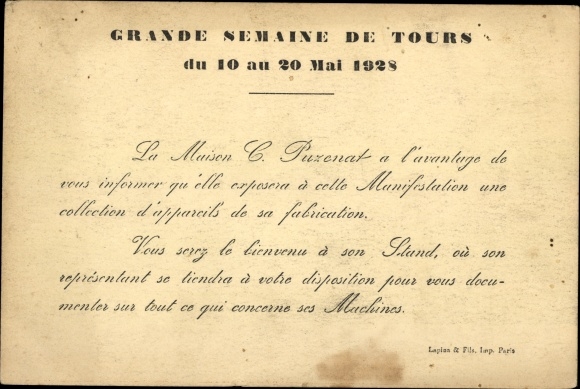 GRANDE SEMAINE DE TOURS
du 10 au 20 Mai 1928
La Maison C. Puzenat a l'avantage de
vous informer qu'elle exposera à cette Manifestation une
collection d'appareils de sa fabrication.
Vous serez le bienvenu à son Stand, où son
représentant se tiendra à votre disposition pour vous docu-
menter sur tout ce qui concerne ses Machines.
Lapina & Fils, Imp. Paris